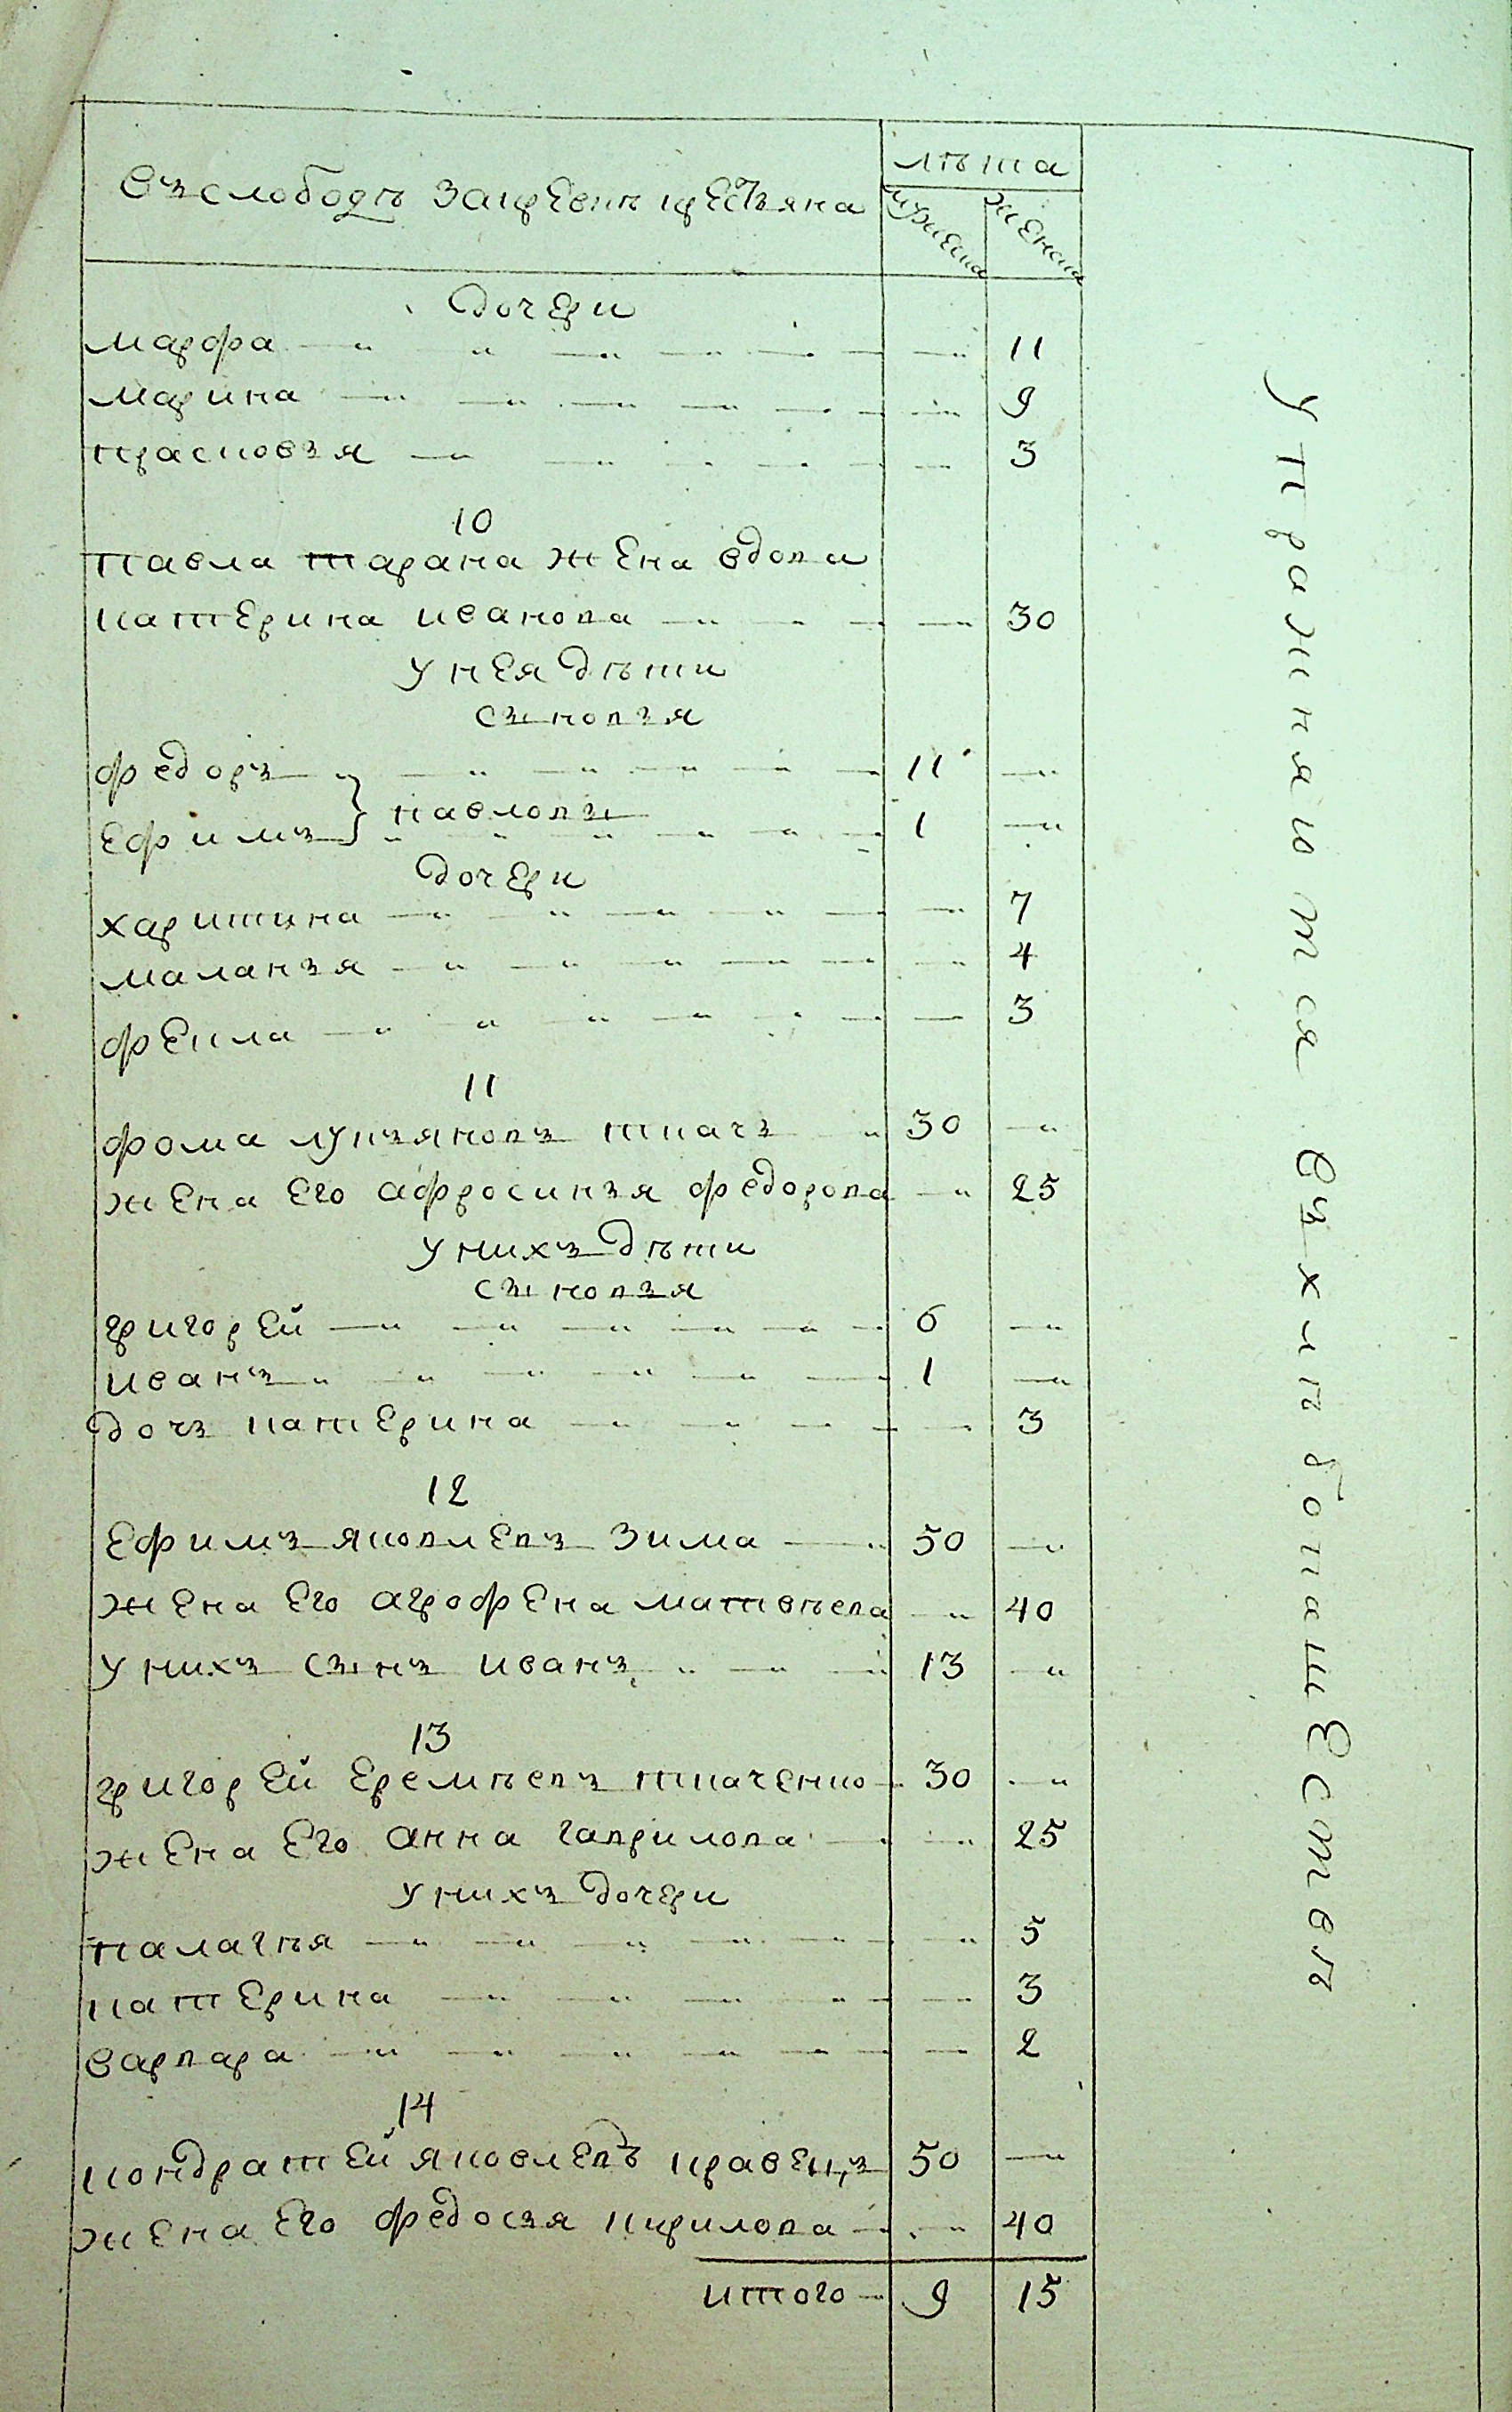 Въ слободѣ Зацревкѣ крестьяна
лѣта
мужеска
женска
Дочери
Марфа 11
Марина 9
Прасковья 3
10
Павла Тарана жена вдова
Катерина Иванова 30
у нея дѣти
сыновья
Федоръ 11
Павловы
Ефимъ 1
Дочери
Харитина 7
Маланья 4
Фекла 3
11
Фома Лукьяновъ Ткачъ 30
жена Его Афросинья Федорова 25
у нихъ дѣти
сыновья
Григорей 6
Иванъ 1
дочь Катерина 3
12
Ефимъ Яковлевъ Зима 50
Жена Его Агрофена Матвѣева 40
у нихъ сынъ Иванъ 13
13
Григорей Еремѣевъ Ткаченко 30
жена Его Анна Гаврилова 25
у нихъ дочери
Палагѣя 5
Катерина 3
Варвара 2
14
Кондратей Яковлевъ Кравецъ 50
жена Его Федосья Кирилова 40
итого 9 15
упражняются въ хлѣбопашествѣ